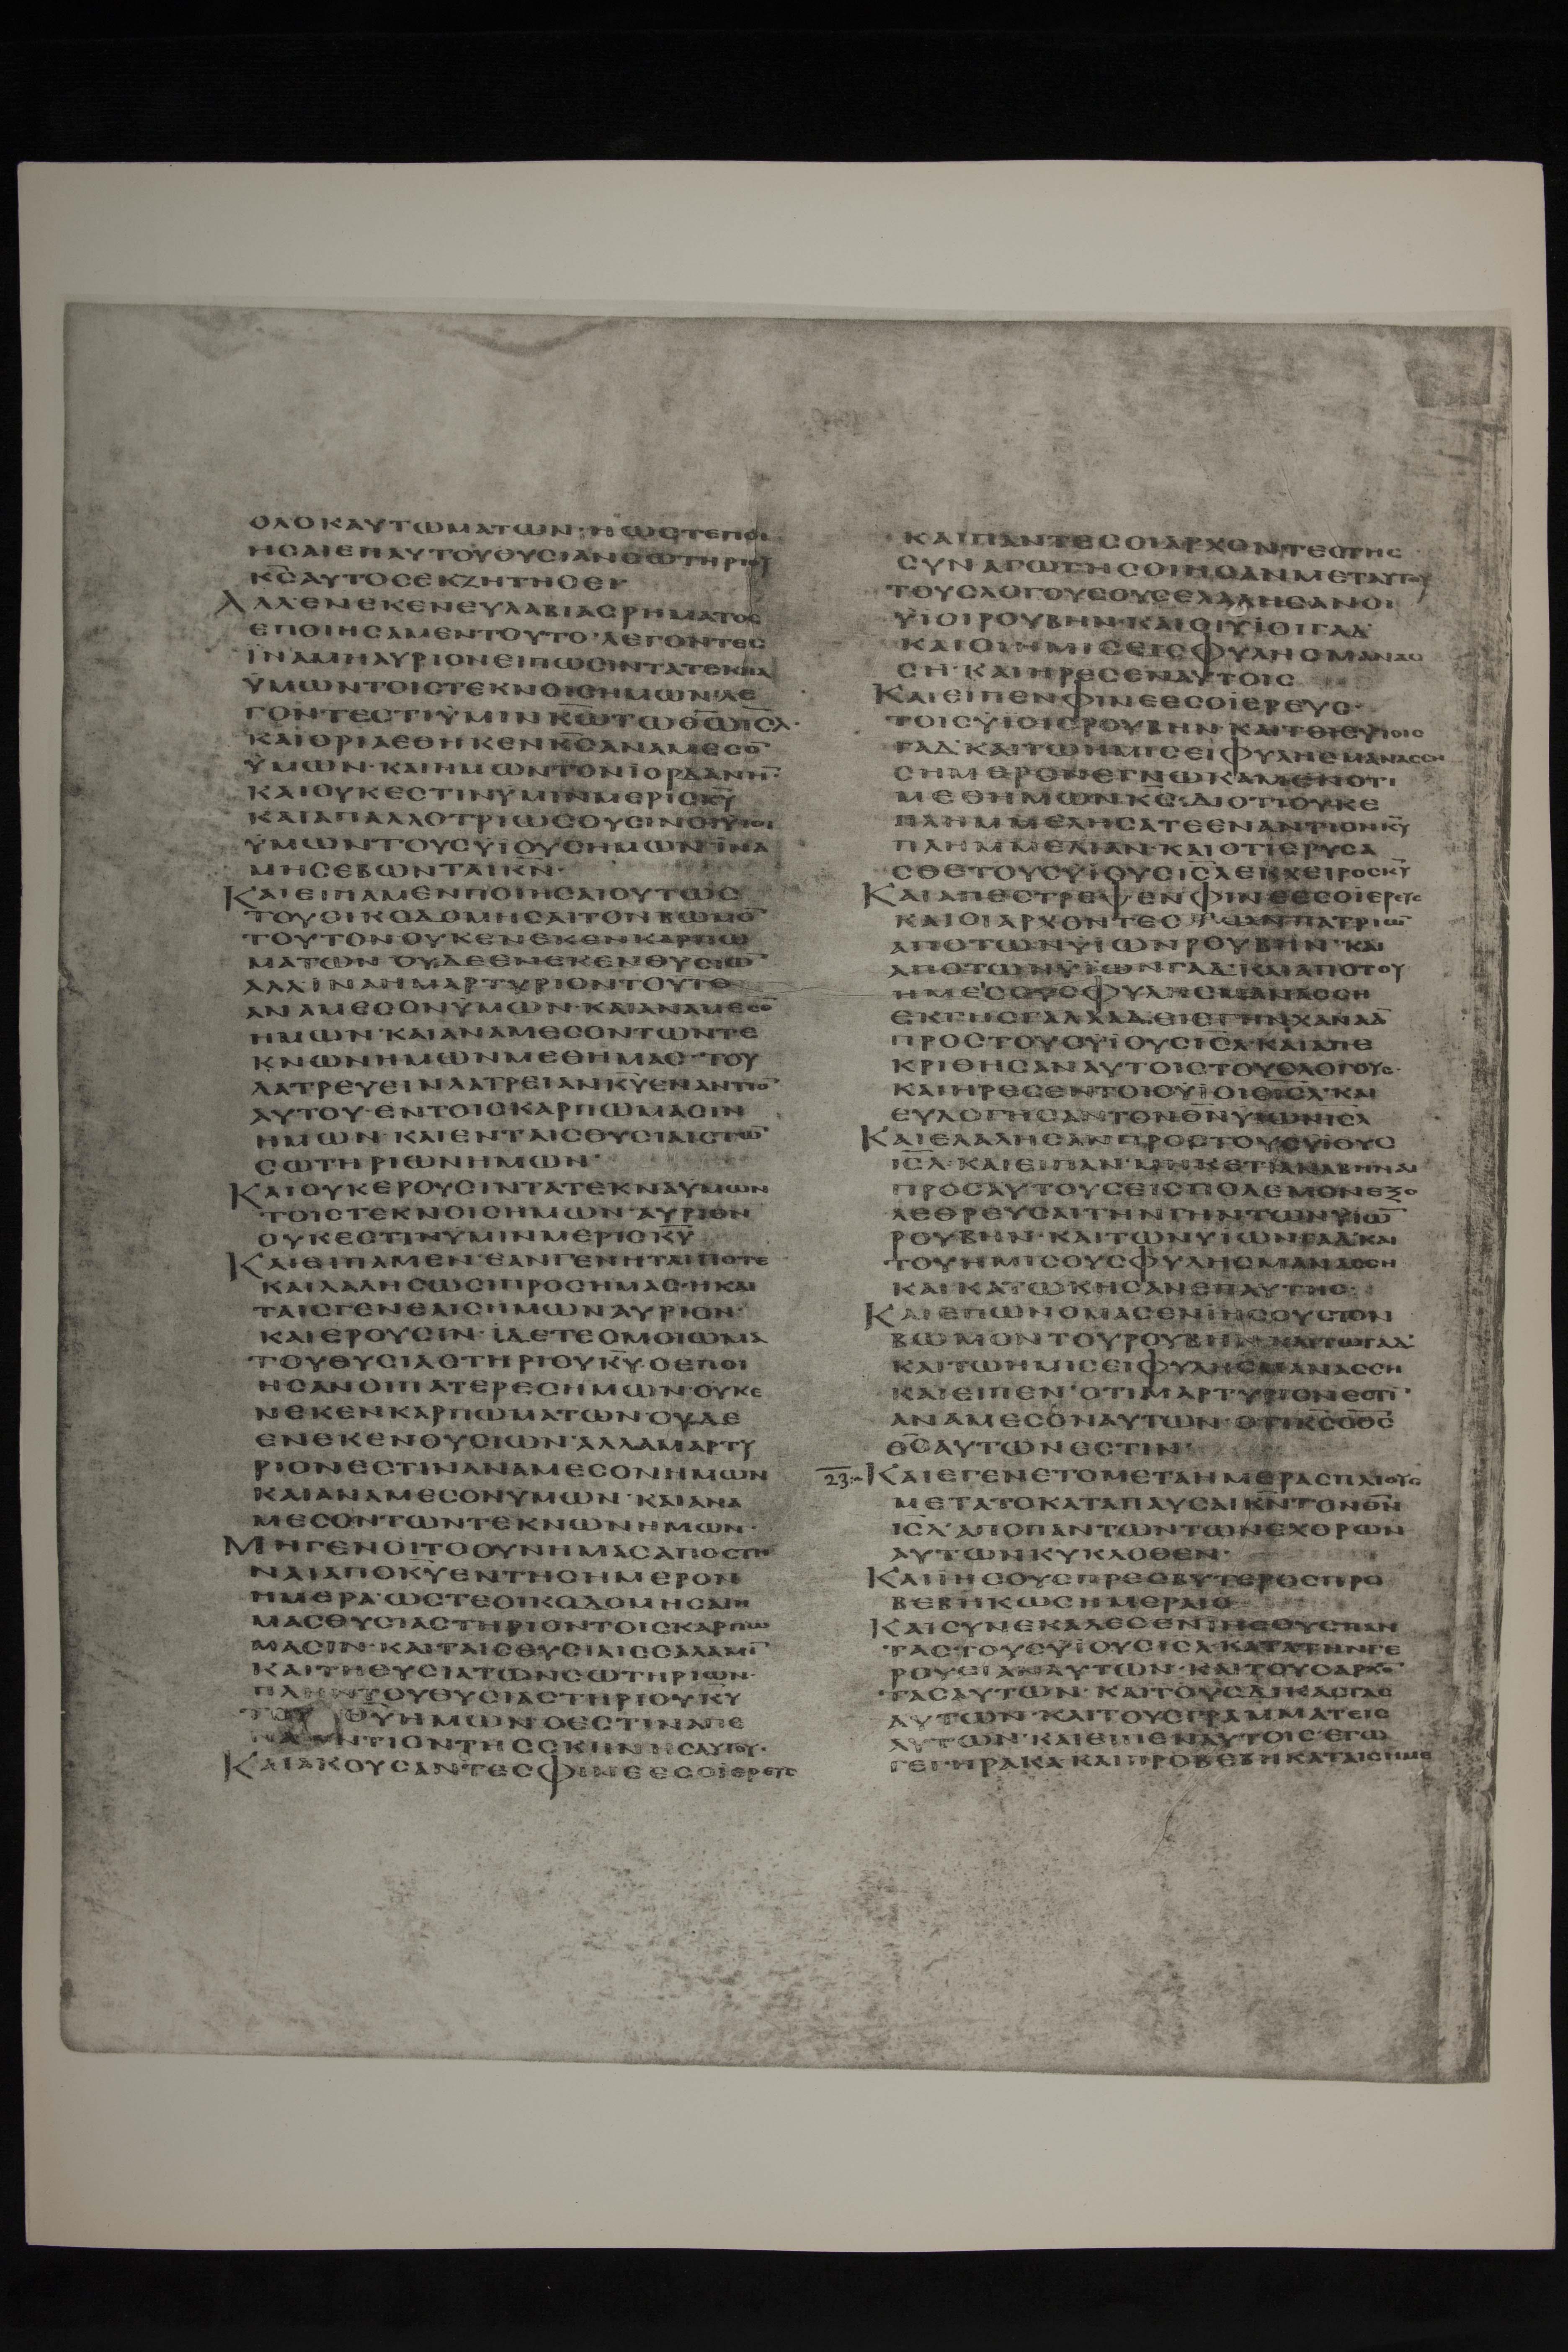 ΟΛΟΚΑΥΤΩΜΑΤΩΝ·ΗΩϹΤΕΠΟΙ
ΗϹΑΙΕΠΑΥΤΟΥΘΥϹΙΑΝϹΩΤΗΡΙΟΥ
ΚϹ̅ΑΥΤΟϹΕΚΖΗΤΗϹΕΙ·
ΑΛΛΕΝΕΚΕΝΕΥΛΑΒΙΑϹΡΗΜΑΤΟϹ
ΕΠΟΙΗϹΑΜΕΝΤΟΥΤΟ·ΛΕΓΟΝΤΕϹ
ΪΝΑΜΗΑΥΡΙΟΝΕΙΠΩϹΙΝΤΑΤΕΚΝΑ
ΫΜΩΝΤΟΙϹΤΕΚΝΟΙϹΗΜΩΝ·ΛΕ
ΓΟΝΤΕϹΤΙΫΜΙΝΚ̅Ω̅ΤΩΘ̅Ω̅ΙϹ̅Λ̅·
ΚΑΙΟΡΙΑΕΘΗΚΕΝΚ̅Ϲ̅ΑΝΑΜΕϹΟ̅
ΫΜΩΝ·ΚΑΙΗΜΩΝΤΟΝΙΟΡΔΑΝΗ̅·
ΚΑΙΟΥΚΕϹΤΙΝΫΜΙΝΜΕΡΙϹΚ̅Υ̅
ΚΑΙΑΠΑΛΛΟΤΡΙΩϹΟΥϹΙΝΟΙΫΙΟΙ
ΫΜΩΝΤΟΥϹΫΙΟΥϹΗΜΩΝΪΝΑ
ΜΗϹΕΒΩΝΤΑΙΚ̅Ν̅·
ΚΑΙΕΙΠΑΜΕΝΠΟΙΗϹΑΙΟΥΤΩϹ
ΤΟΥΟΙΚΟΔΟΜΗϹΑΙΤΟΝΒΩΜΟ̅
ΤΟΥΤΟΝΟΥΚΕΝΕΚΕΝΚΑΡΠΩ
ΜΑΤΩΝΟΥΔΕΕΝΕΚΕΝΘΥϹΙΩ̅
ΑΛΛΙΝΑΗΜΑΡΤΥΡΙΟΝΤΟΥΤΟ
ΑΝΑΜΕϹΟΝΫΜΩΝ·ΚΑΙΑΝΑΜΕϹΟ̅
ΗΜΩΝ·ΚΑΙΑΝΑΜΕϹΟΝΤΩΝΤΕ
ΚΝΩΝΗΜΩΝΜΕΘΗΜΑϹ·ΤΟΥ
ΛΑΤΡΕΥΕΙΝΛΑΤΡΕΙΑΝΚ̅Υ̅ΕΝΑΝΤΙΟ̅
ΑΥΤΟΥ·ΕΝΤΟΙϹΚΑΡΠΩΜΑϹΙΝ
ΗΜΩΝ·ΚΑΙΕΝΤΑΙϹΘΥϹΙΑΙϹΤΩ̅
ϹΩΤΗΡΙΩΝΗΜΩΝ·
ΚΑΙΟΥΚΕΡΟΥϹΙΝΤΑΤΕΚΝΑΫΜΩΝ
ΤΟΙϹΤΕΚΝΟΙϹΗΜΩΝ·ΑΥΡΙΟΝ
ΟΥΚΕϹΤΙΝΫΜΙΝΜΕΡΙϹΚ̅Υ̅
ΚΑΙΕΙΠΑΜΕΝ·ΕΑΝΓΕΝΗΤΑΙΠΟΤΕ
ΚΑΙΛΑΛΗϹΩϹΙΠΡΟϹΗΜΑϹ·ΗΚΑΙ
ΤΑΙϹΓΕΝΕΑΙϹΗΜΩΝΑΥΡΙΟΝ·
ΚΑΙΕΡΟΥϹΙΝ·ΙΔΕΤΕΟΜΟΙΩΜΑ
ΤΟΥΘΥϹΙΑϹΤΗΡΙΟΥΚ̅Υ̅·ΟΕΠΟΙ
ΗϹΑΝΟΙΠΑΤΕΡΕϹΗΜΩΝ·ΟΥΚΕ
ΝΕΚΕΝΚΑΡΠΩΜΑΤΩΝ·ΟΥΔΕ
ΕΝΕΚΕΝΘΥϹΙΩΝ·ΑΛΛΑΜΑΡΤΥ
ΡΙΟΝΕϹΤΙΝΑΝΑΜΕϹΟΝΗΜΩΝ
ΚΑΙΑΝΑΜΕϹΟΝΫΜΩΝ·ΚΑΙΑΝΑ
ΜΕϹΟΝΤΩΝΤΕΚΝΩΝΗΜΩΝ·
ΜΗΓΕΝΟΙΤΟΟΥΝΗΜΑϹΑΠΟϹΤΗ
ΝΑΙΑΠΟΚ̅Υ̅ΕΝΤΗϹΗΜΕΡΟΝ
ΗΜΕΡΑ·ΩϹΤΕΟΙΚΟΔΟΜΗϹΑΙΗ
ΜΑϹΘΥϹΙΑϹΤΗΡΙΟΝΤΟΙϹΚΑΡΠΩ
ΜΑϹΙΝ·ΚΑΙΤΑΙϹΘΥϹΙΑΙϹϹΑΛΑΜΙ̅
ΚΑΙΤΗΘΥϹΙΑΤΩΝϹΩΤΗΡΙΩΝ·
ΠΛΗΝΤΟΥΘΥϹΙΑϹΤΗΡΙΟΥΚ̅Υ̅
ΤΟΥΘ̅Υ̅ΗΜΩΝΟΕϹΤΙΝΑΠΕ
ΝΑΝΤΙΟΝΤΗϹϹΚΗΝΗϹΑΥΤΟΥ·
ΚΑΙΑΚΟΥϹΑΝΤΕϹΦΙΝΕΕϹΟΪΕΡΕΥϹ
ΚΑΙΠΑΝΤΕϹΟΙΑΡΧΟΝΤΕϹΤΗϹ
ϹΥΝΑΓΩΓΗϹΟΙΗϹΑΝΜΕΤΑΥΤΟΥ
ΤΟΥϹΛΟΓΟΥϹΟΥϹΕΛΑΛΗϹΑΝΟΙ
ΫΙΟΙΡΟΥΒΗΝ·ΚΑΙΟΙΫΙΟΙΓΑΔ
ΚΑΙΟΙΗΜΙϹΕΙϹΦΥΛΗϹΜΑΝΑϹ
ϹΗ·ΚΑΙΗΡΕϹΕΝΑΥΤΟΙϹ
ΚΑΙΕΙΠΕΝΦΙΝΕΕϹΟΪΕΡΕΥϹ·
ΤΟΙϹΫΙΟΙϹΡΟΥΒΗΝ·ΚΑΙΤΟΙϹΥΙΟΙϹ
ΓΑΔ·ΚΑΙΤΩΗΜΙϹΕΙΦΥΛΗϹΜΑΝΑϹϹΗ
ϹΗΜΕΡΟΝΕΓΝΩΚΑΜΕΝΟΤΙ
ΜΕΘΗΜΩΝΚ̅Ϲ̅·ΔΙΟΤΙΟΥΚΕ
ΠΛΗΜΜΕΛΗϹΑΤΕΕΝΑΝΤΙΟΝΚ̅Υ̅
ΠΛΗΜΜΕΛΙΑΝ·ΚΑΙΟΤΙΕΡΥϹΑ
ϹΘΕΤΟΥϹΫΙΟΥϹΙϹ̅Λ̅ΕΚΧΕΙΡΟϹΚ̅Υ̅
ΚΑΙΑΠΕϹΤΡΕΨΕΝΦΙΝΕΕϹΟΪΕΡΕΥϹ
ΚΑΙΟΙΑΡΧΟΝΤΕϹΤΩΝΠΑΤΡΙΩ̅
ΑΠΟΤΩΝΫΙΩΝΡΟΥΒΗΝ·ΚΑΙ
ΑΠΟΤΩΝΫΙΩΝΓΑΔ·ΚΑΙΑΠΟΤΟΥ
ΗΜΕϹΟΥϹΦΥΛΗϹΜΑΝΑϹϹΗ
ΕΚΓΗϹΓΑΛΑΑΔ·ΕΙϹΓΗΝΧΑΝΑΑ̅
ΠΡΟϹΤΟΥϹΫΙΟΥϹΙϹ̅Λ̅·ΚΑΙΑΠΕ
ΚΡΙΘΗϹΑΝΑΥΤΟΙϹΤΟΥϹΛΟΓΟΥϹ·
ΚΑΙΗΡΕϹΕΝΤΟΙϹΫΙΟΙϹΙϹ̅Λ̅·ΚΑΙ
ΕΥΛΟΓΗϹΑΝΤΟΝΘ̅Ν̅ΫΙΩΝΙϹΛ
ΚΑΙΕΛΑΛΗϹΑΝΠΡΟϹΤΟΥϹΫΙΟΥϹ
ΙϹ̅Λ̅·ΚΑΙΕΙΠΑΝ·ΜΗΚΕΤΙΑΝΑΒΗΝΑΙ
ΠΡΟϹΑΥΤΟΥϹΕΙϹΠΟΛΕΜΟΝΕΞΟ
ΛΕΘΡΕΥϹΑΙΤΗΝΓΗΝΤΩΝΫΙΩ̅
ΡΟΥΒΗΝ·ΚΑΙΤΩΝΥΙΩΝΓΑΔ·ΚΑΙ
ΤΟΥΗΜΙϹΟΥϹΦΥΛΗϹΜΑΝΑϹϹΗ
ΚΑΙΚΑΤΩΚΗϹΑΝΕΠΑΥΤΗϹ·
ΚΑΙΕΠΩΝΟΜΑϹΕΝΙΗϹΟΥϹΤΟΝ
ΒΩΜΟΝΤΟΥΡΟΥΒΗΝ·ΚΑΙΤΩΓΑΔ
ΚΑΙΤΩΗΜΙϹΕΙΦΥΛΗϹΜΑΝΑϹϹΗ
ΚΑΙΕΙΠΕΝ·ΟΤΙΜΑΡΤΥΡΙΟΝΕϹΤΙ̅·
ΑΝΑΜΕϹΟΝΑΥΤΩΝ·ΟΤΙΚ̅Ϲ̅ΟΘ̅Ϲ̅
Θ̅Ϲ̅ΑΥΤΩΝΕϹΤΙΝ·
23:-ΚΑΙΕΓΕΝΕΤΟΜΕΤΑΗΜΕΡΑϹΠΛΙΟΥϹ
ΜΕΤΑΤΟΚΑΤΑΠΑΥϹΑΙΚ̅Ν̅ΤΟΝΘ̅Ν̅
ΙϹ̅Λ̅·ΑΠΟΠΑΝΤΩΝΤΩΝΕΧΘΡΩΝ
ΑΥΤΩΝΚΥΚΛΟΘΕΝ·
ΚΑΙΙΗϹΟΥϹΠΡΕϹΒΥΤΕΡΟϹΠΡΟ
ΒΕΒΗΚΩϹΗΜΕΡΑΙϹ
ΚΑΙϹΥΝΕΚΑΛΕϹΕΝΙΗϹΟΥϹΠΑΝ
ΤΑϹΤΟΥϹΫΙΟΥϹΙϹ̅Λ̅·ΚΑΤΑΤΗΝΓΕ
ΡΟΥϹΙΑΝΑΥΤΩΝ·ΚΑΙΤΟΥϹΑΡΧΟ̅
ΤΑϹΑΥΤΩΝ·ΚΑΙΤΟΥϹΔΙΚΑϹΤΑϹ
ΑΥΤΩΝ·ΚΑΙΤΟΥϹΓΡΑΜΜΑΤΕΙϹ
ΑΥΤΩΝ·ΚΑΙΕΙΠΕΝΑΥΤΟΙϹ·ΕΓΩ
ΓΕΓΗΡΑΚΑΚΑΙΠΡΟΒΕΒΗΚΑΤΑΙϹΗΜΕ